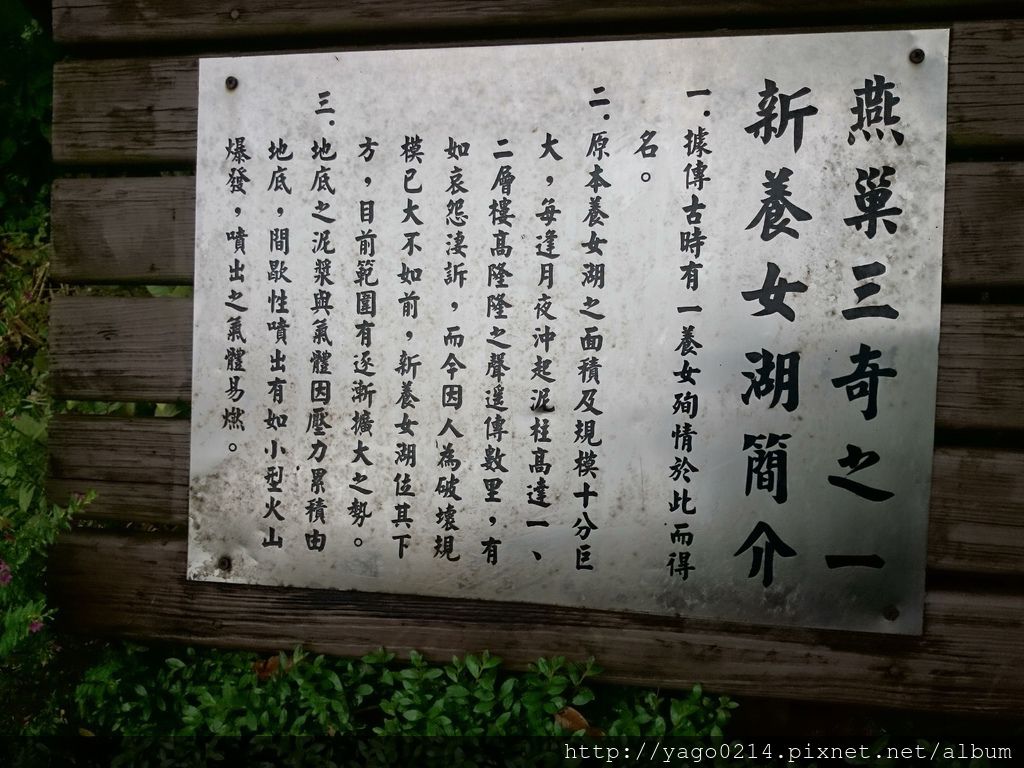 燕巢三奇之一
新養女湖簡介
一．據傳古時有一養女殉情於此而得
名。
二．原本養女湖之面積及規模十分巨
大，每逢月夜沖起泥柱高達一、
二層樓高隆隆之聲遥傳數里，有
如哀怨淒訴，而今因人為破壞規
模已大不如前，新養女湖位其下
方，目前範圍有逐漸擴大之勢。
三．地底之泥漿與氣體因壓力累積由
地底，間歇性噴出有如小型火山
爆發，噴出之氣體易燃。
http://yago0214.pixnet.net/album